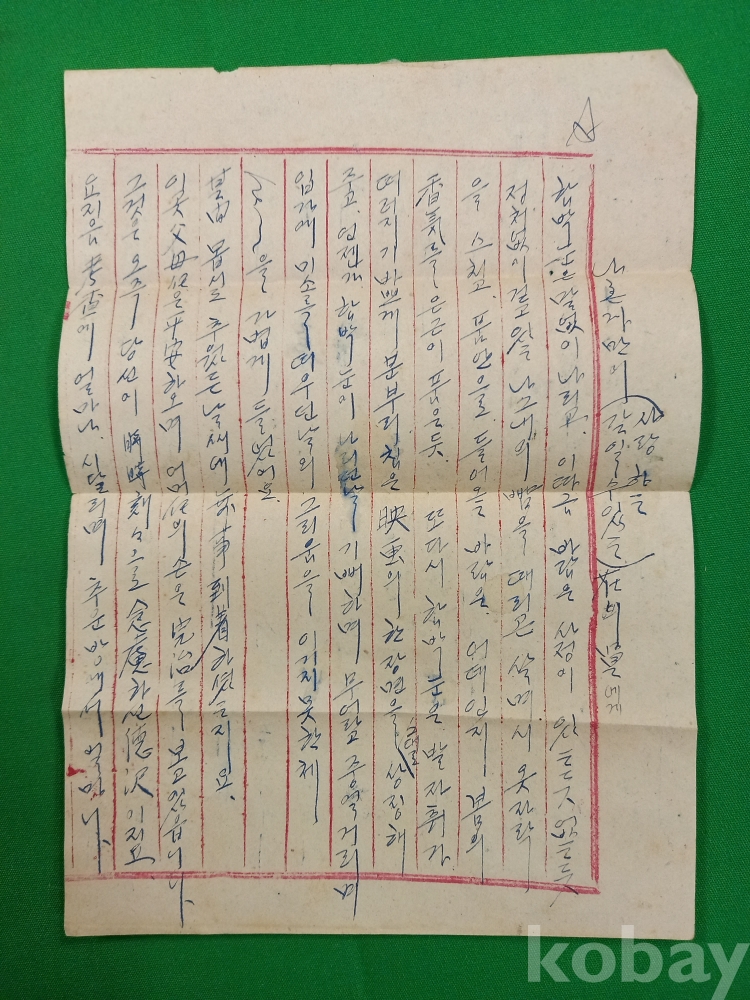 나 혼자만이 사랑하는
함박눈은 말없이 나리고, 이따금 바람은 사정이 있는듯 없는듯
정처없이 걷고있는 나그네의 뺨을 때리곤 살며시 옷자락
을 스치고. 품안으로 들어온 바람은. 어데인지 봄의
香氣를 은은이 품은듯. 또다시 함박눈은 발자취가
떠러지기 바쁘게 분부리 映画의 한장면을 상징해
주고, 언젠가 함박눈이 나리던날 기뻐하며 무어라고 중얼거리며
입가에 미소를 띠우던날의 그리움을 이기지 못한체
을 가볍게 들었어요.
其間 몹시도 추웠든 날씨에 到着하셨는지요.
父母任은 平安하오며 어머任의 손은 完治를 보고있읍니다.
그것은 오주 당신이 時時刻々으로 念慮하신 德澤이지요
요지음 考査에 얼마나. 시달리며 추운방에서 얼마나.
kobay